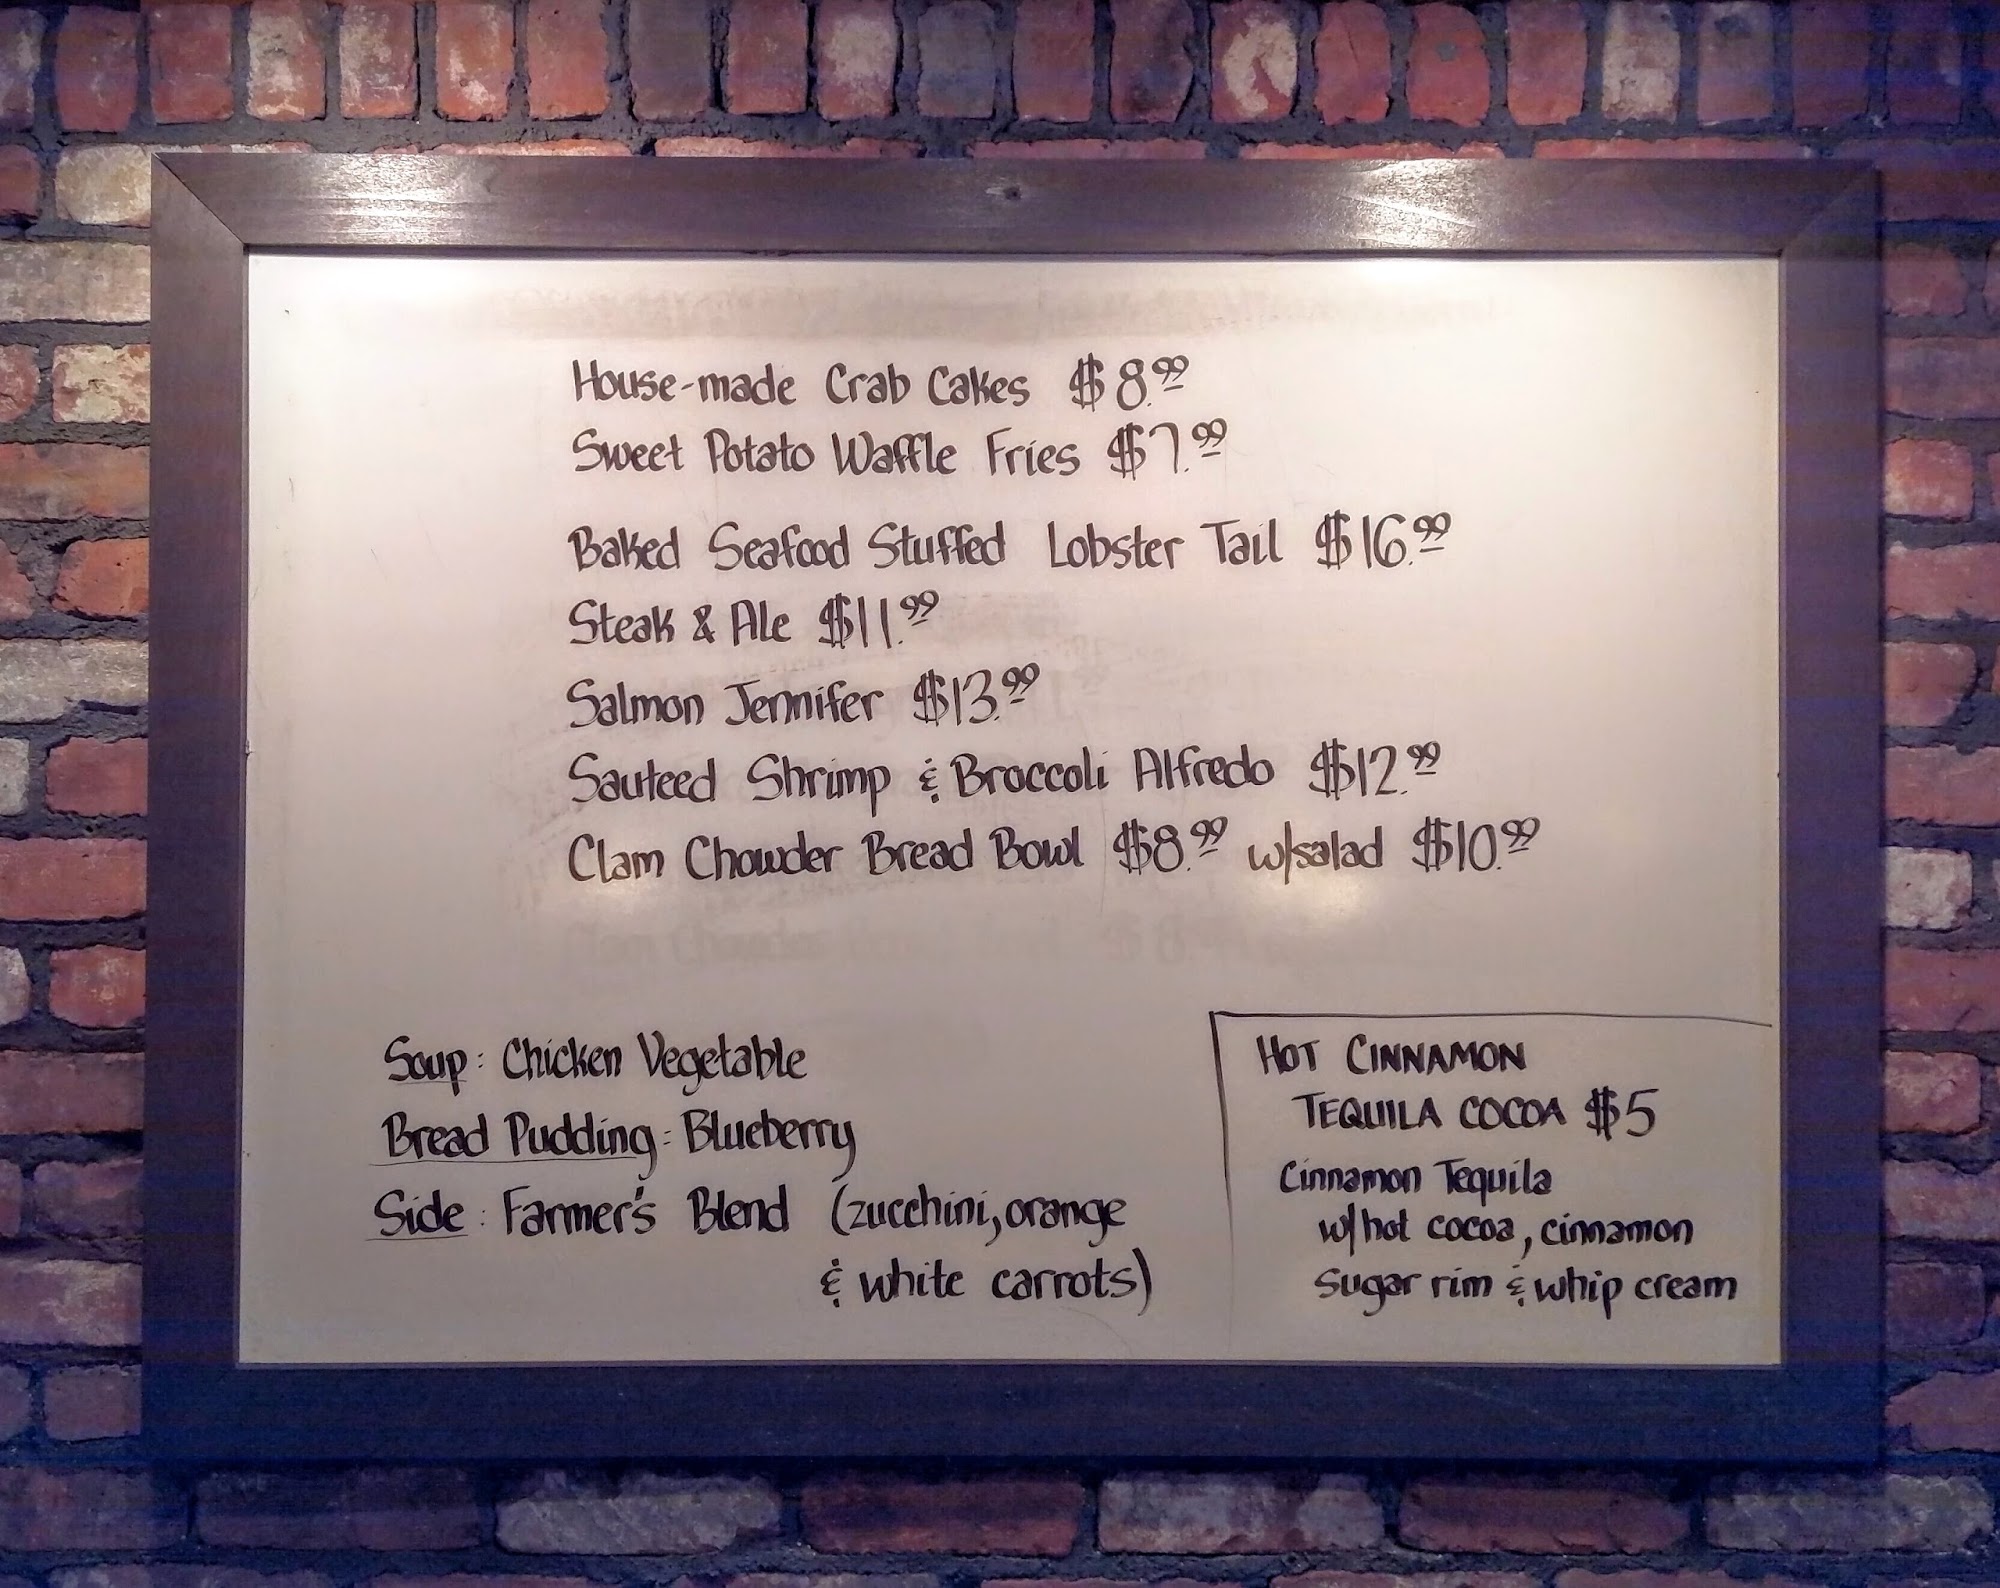 House-made Crab Cakes $8.99
Sweet Potato Waffle Fries $7.99
Baked Seafood Stuffed Lobster Tail $16.99
Steak & Ale $11.99
Salmon Jennifer $13.99
Sauteed Shrimp & Broccoli Alfredo $12.99
Clam Chowder Bread Bowl $8.99 w/salad $10.99
Soup: Chicken Vegetable
Bread Pudding: Blueberry
Side: Farmer's Blend (zucchini, orange
& white carrots)
HOT CINNAMON
TEQUILA COCOA $5
Cinnamon Tequila
w/hot cocoa, cinnamon
sugar rim & whip cream